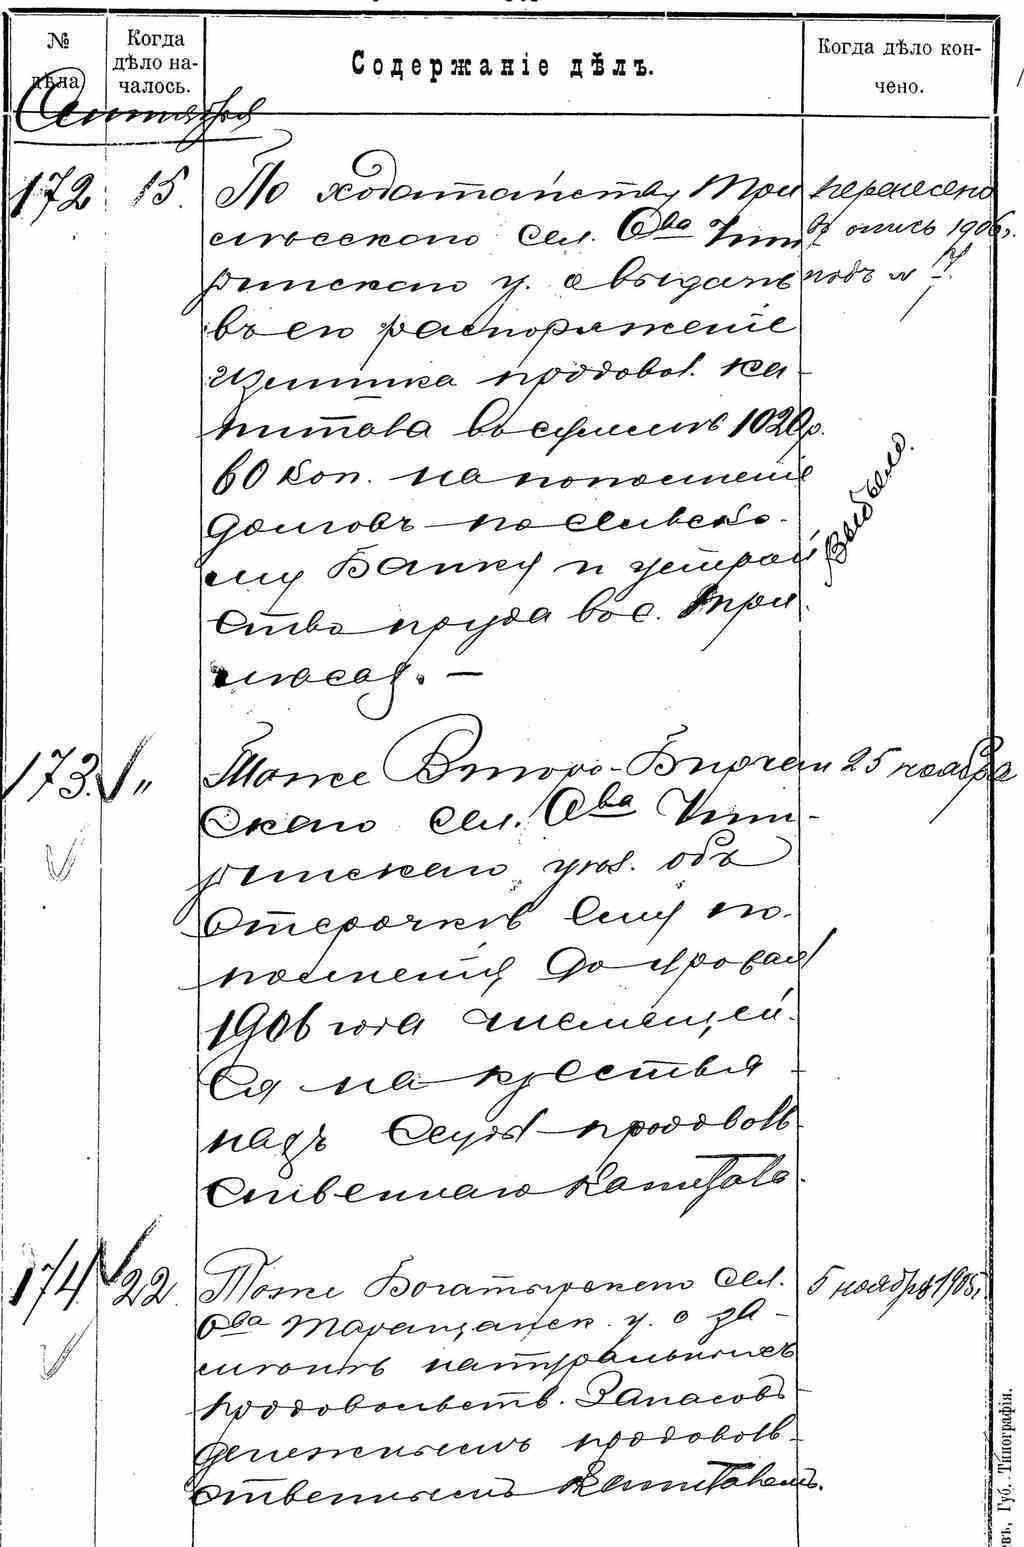 № дѣла
Когда дѣло на-
чалось.
Содержаніе дѣлъ.
Когда дѣло кон-
чено.
Сентября
172 15. По ходатайству Три
лѣсскаго сел. О-ва Чиги
ринскаго у. о выдачѣ
въ его распоряженіе
излишка продовол. ка-
питала въ суммѣ 1020 р.
60 коп. на пополненіе
долговъ по Сельско-
му Банку и устрой
ство пруда въ с. Три
лѣсах. —
перенесено
въ опись 1906 г.
подъ №
Выбыло.
173. " Тоже Второ-
скаго сел. О-ва Чиги-
ринскаго уѣз. объ
отсрочкѣ ему по-
полненія до урожая
1906 года числящей-
ся на крестья-
нахъ ссуды продоволь-
ственнаго капитала.
25 ноября
174 22. Тоже Богатырскаго сел.
О-ва Таращанск. у. о за-
мѣнѣ натуральныхъ
продовольств. запасовъ
денежнымъ продоволь-
ственнымъ капиталомъ.
5 ноября 1905 г.
евъ, Губ. Типографія.